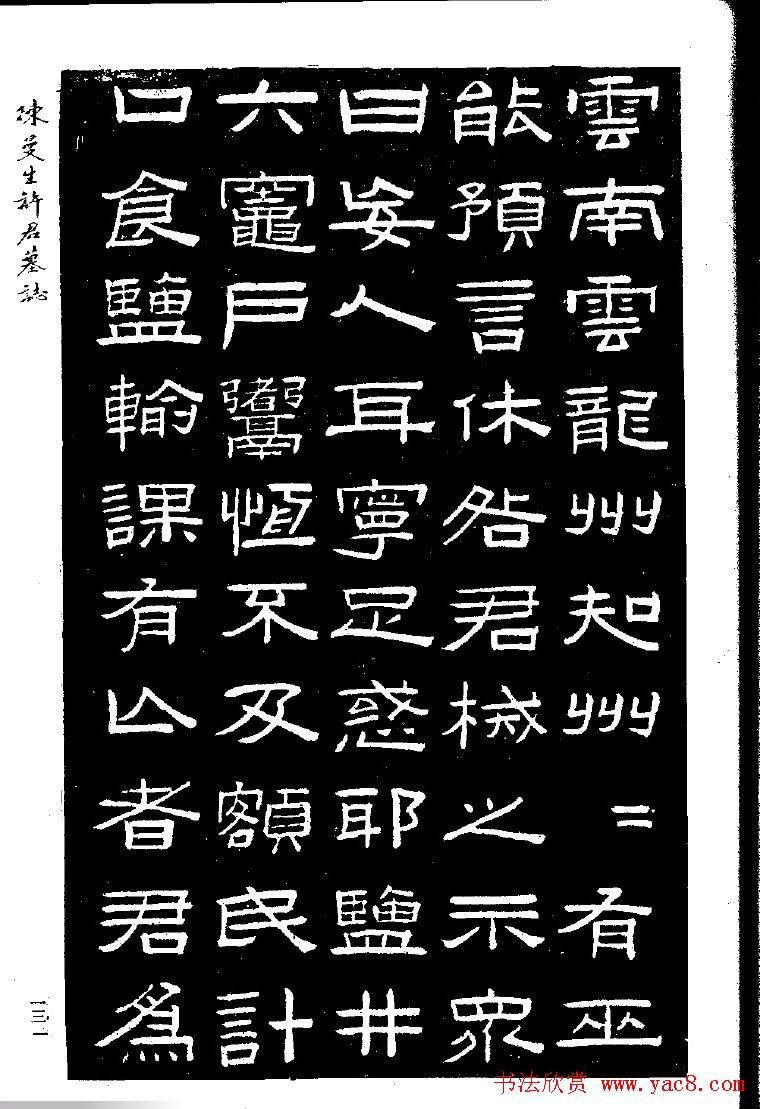 雲南雲龍州知州〻有巫
能預言休咎君械之示眾
曰妄人耳寧足惑耶鹽井
六竈戶鬻恒不及額民計
口食鹽輸課有亾者君為
陳曼生許君墓誌
一三一
书法欣赏 www.yac8.com